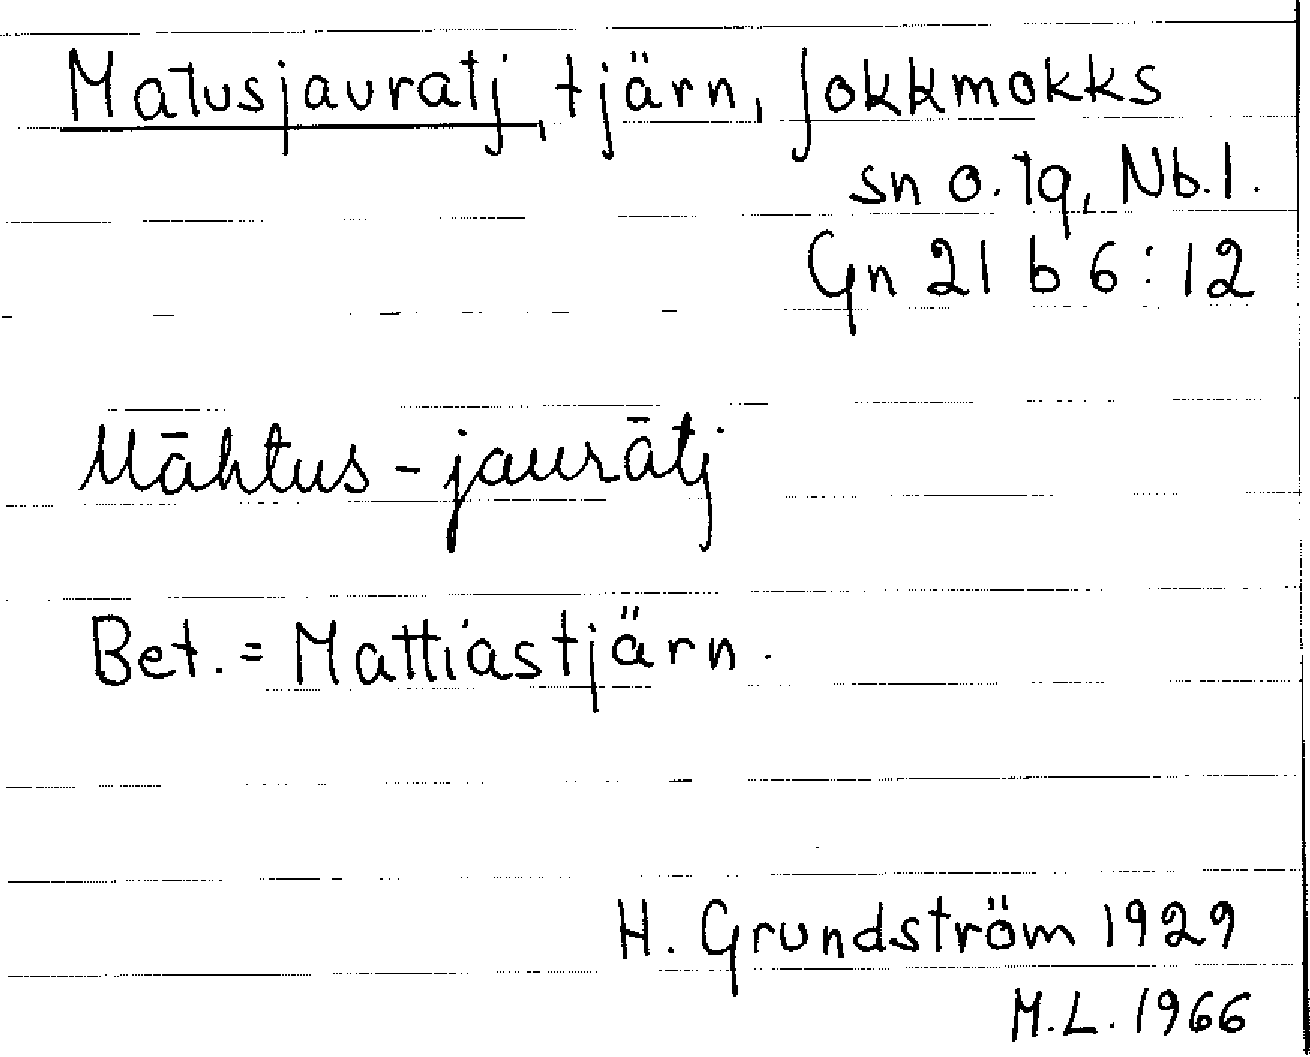 Matusjauratj, tjärn, Jokkmokks
sn o. tg, Nb.l.
Gn 21 b 6:12
Māhtus-jaurātj
Bet. = Mattiastjärn.
H. Grundström 1929
M.L. 1966